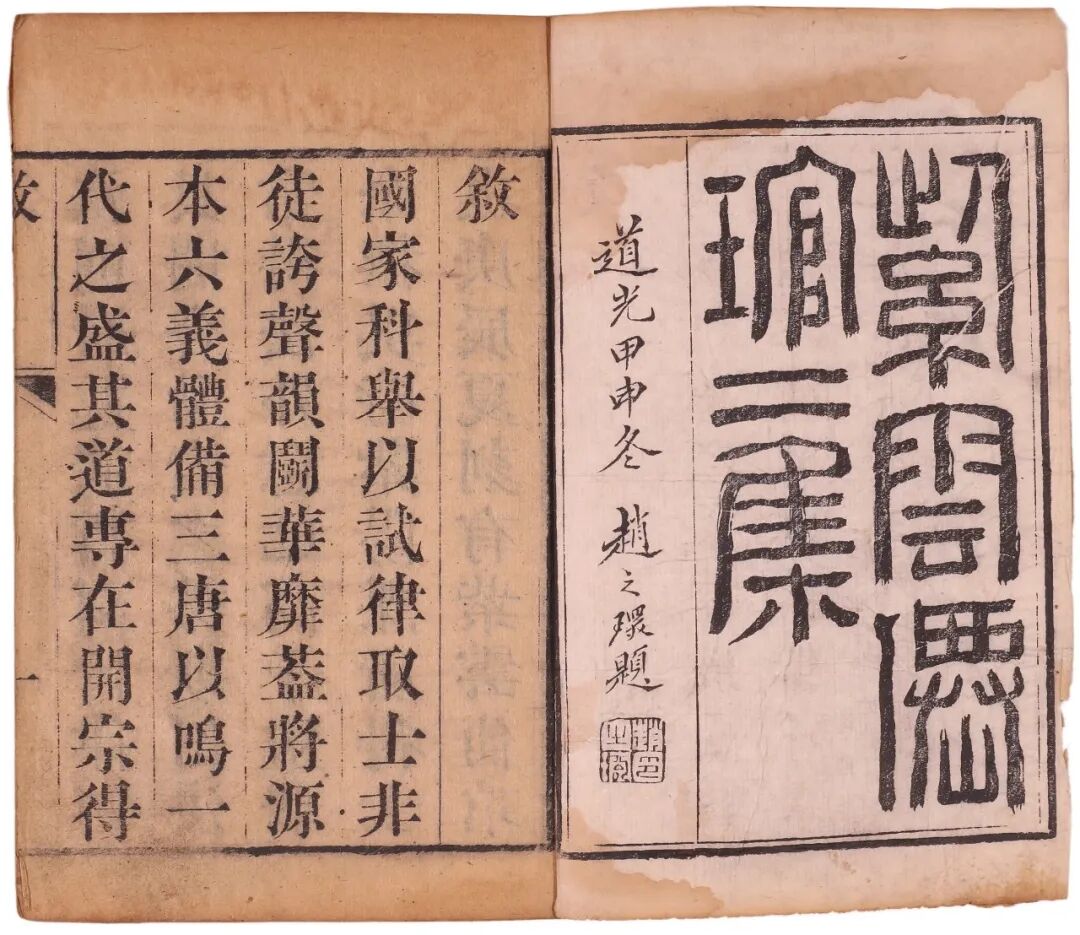 紫雲僊
琯二集
道光甲申冬 趙之環題
趙印之環
敘
國家科舉以試律取士非
徒誇聲韻鬭華靡葢將源
本六義體備三唐以鳴一
代之盛其道專在開宗得
敘 一